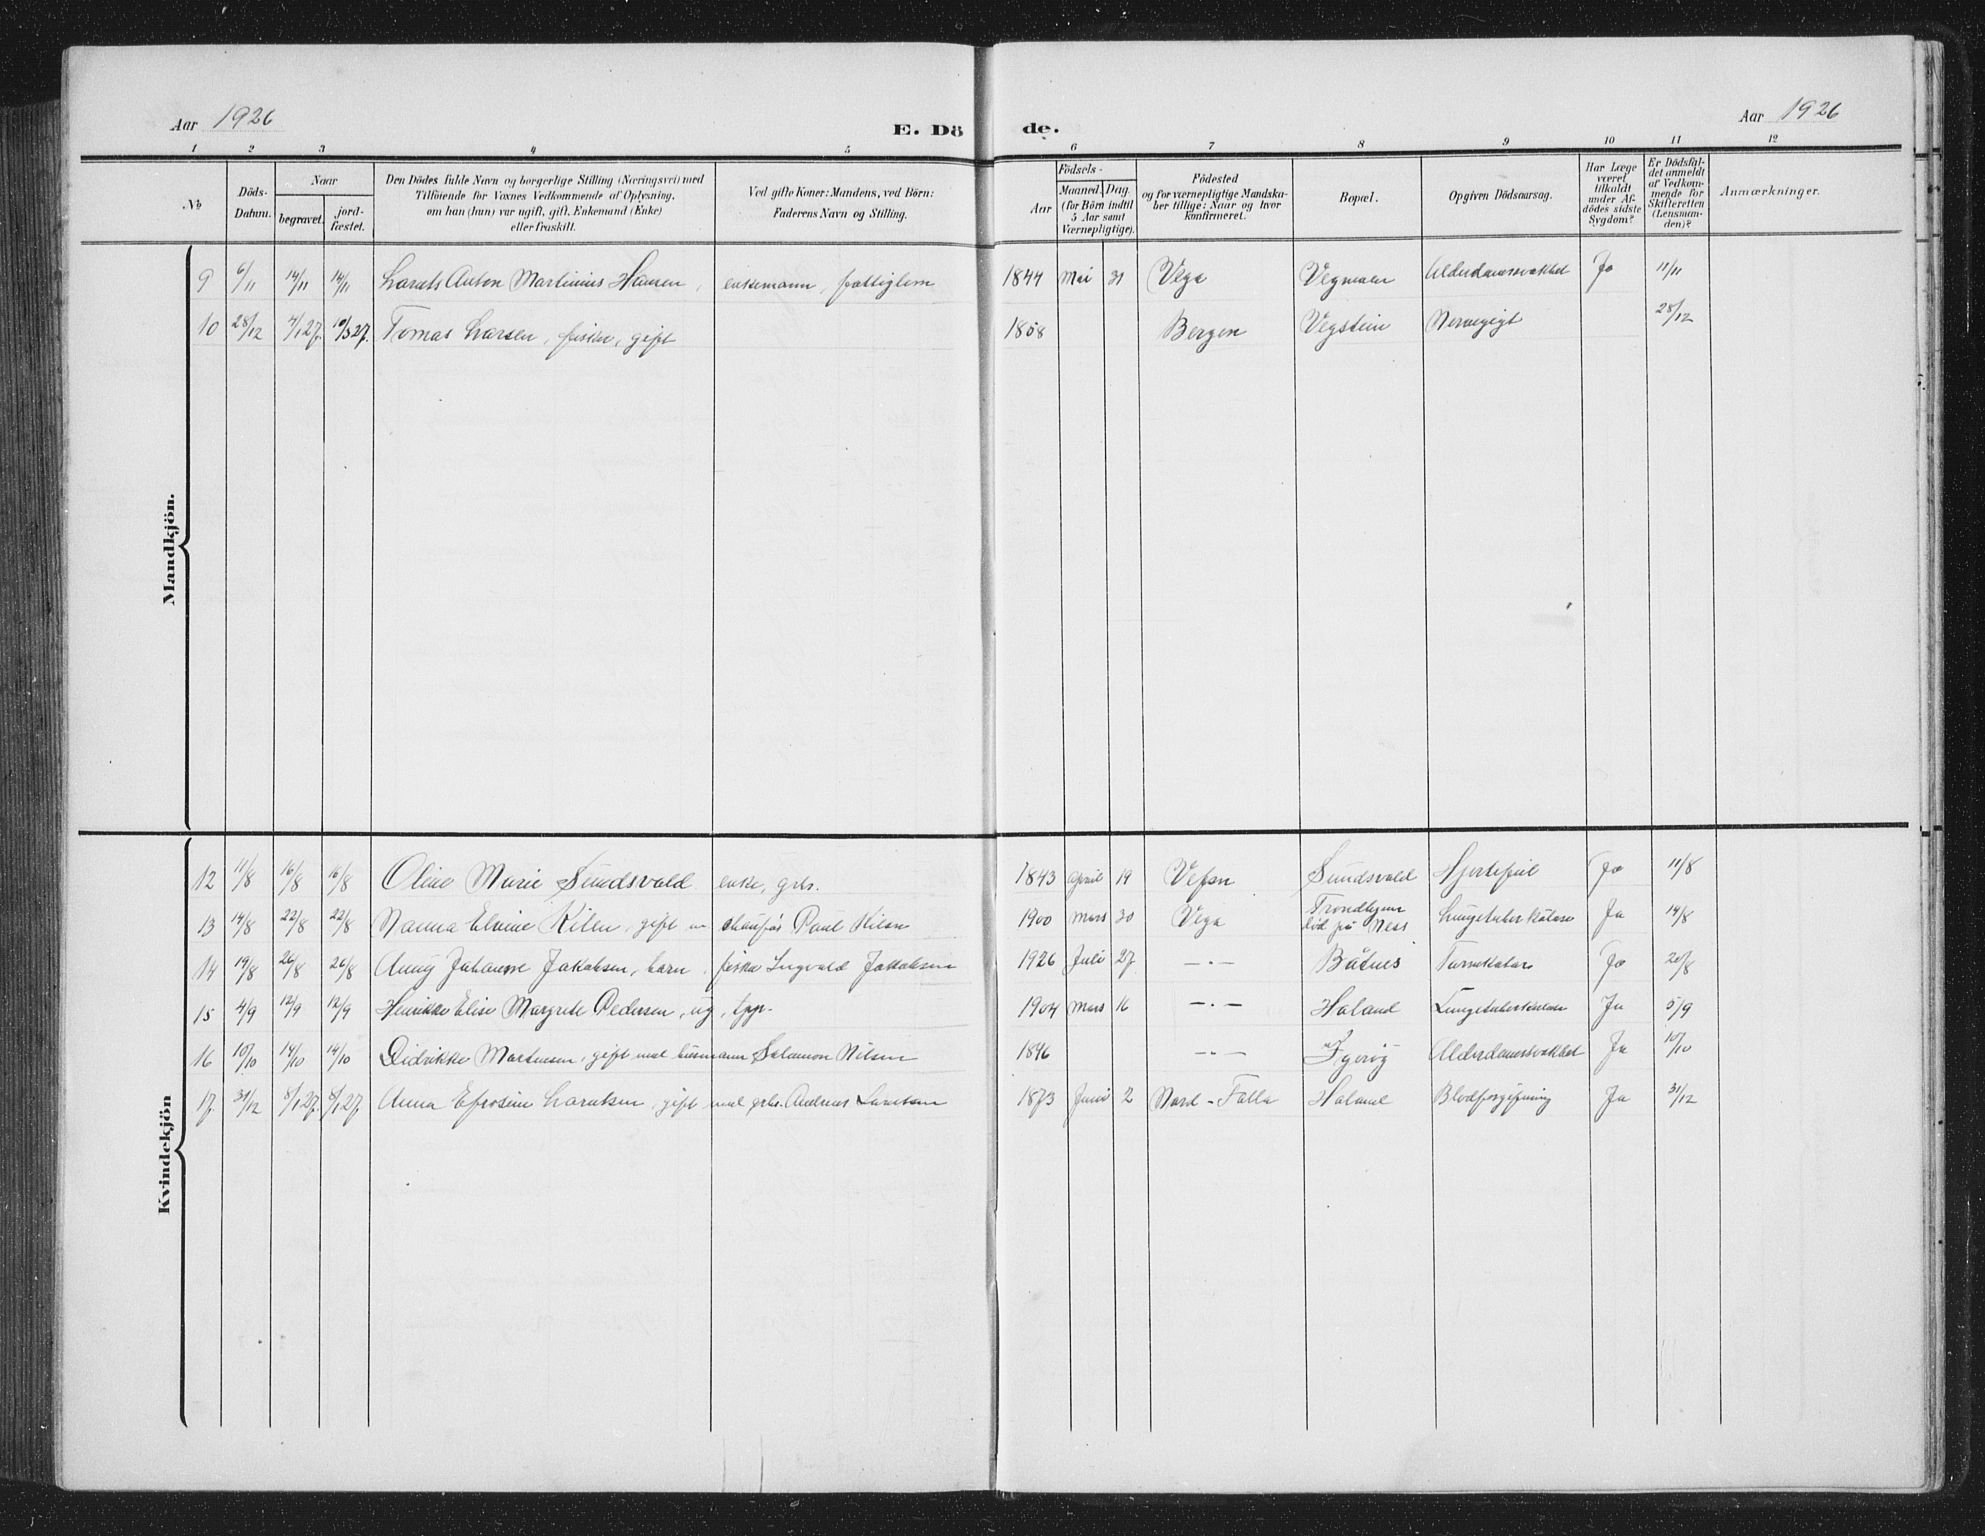 Aar 1926 E. Dö de. Aar 1926
1 2 3 4 5 6 7 8 9 10 11 12
No
Döds-Datum.
Naar
begravet.
jord-fæstet.
Den Dödes fulde Navn og borgerlige Stilling (Næringsvei) med
Tilföiende for Voxnes Vedkommende af Oplysning,
om han (hun) var ugift, gift, Enkemand (Enke)
eller fraskilt.
Ved gifte Koner: Mandens, ved Börn:
Faderens Navn og Stilling.
Födsels-
Aar
Maaned. Dag.
(for Börn indtil
5 Aar samt
Værnepligtige).
Födested
og for værnepligtige Mandska-
ber tillige: Naar og hvor
konfirmeret.
Bopæl.
Opgiven Dödsaarsag.
Har Læge
været
tilkaldt
under Af-
dödes sidste
Sygdom?
Er Dödsfal-
det anmeldt
af Vedkom-
mende for
Skifteretten
(Lensman-
den)?
Anmærkninger.
Mandkjön.
9 6/11 14/11 14/11 Anton Martinius Hansen, enkemann, fattiglem 1844 Mai 31 Vega Alderdomssvakhet Ja 11/11
10 28/12 4/1 27. 10/3 27. Tomas Larsen, fisker, gift 1858 Bergen Vegstein 28/12
Kvindekjön
12 11/8 16/8 16/8 Oline Marie Sundsvold enke, grbs. 1843 April 19 Vefsn Sundsvold Hjertefeil Ja 11/8
13 14/8 22/8 22/8 Elvine Kilen, gift m chaufør Paul Kilen 1900 Mars 30 Vega Trondhjem död på Ness Lungetuberkulose Ja 14/8
14 19/8 26/8 26/8 Anny Johanne Jakobsen, barn, fisker Ingvald Jakobsen 1926 Juli 27 — . — Båtnes Ja 20/8
15 4/9 12/9 12/9 Henrikke Elise Margrete Pedersen, ug, tjp. 1904 Mars 16 — . — Haland Lungetuberkulose Ja 5/9
16 10/10 14/10 14/10 Didrikke Martinsen, gift med husmann Salamon Nilsen 1846 — . — Alderdomssvakhet Ja 10/10
17. 31/12 8/1 27. 8/1 27. Anna Efrosine Lorntsen, gift med grbs. Andreas Lorntsen 1873 Juni 2 Nord-Folla Haland Blodforgiftning Ja 31/12